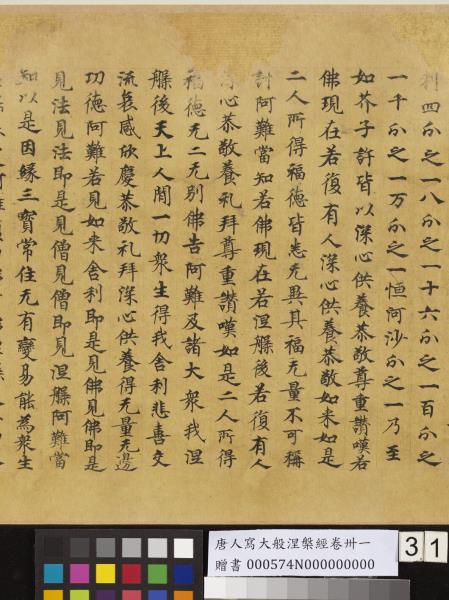 利四分之一八分之一十六分之一百分之
一千分之一万分之一恒河沙分之一乃至
如芥子許皆以深心供養恭敬尊重讚嘆若
佛現在若復有人深心供養恭敬如来如是
二人所得福德皆悉无異其福无量不可稱
計阿難當知若佛現在若涅槃後若復有人
心恭敬養礼拜尊重讚嘆如是二人所得
福德无二无別佛告阿難及諸大衆我涅
槃後天上人間一切衆生得我舍利悲喜交
流哀感欣慶恭敬礼拜深心供養得无量无邊
功德阿難若見如来舍利即是見佛見佛即是
見法見法即是見僧見僧即見涅槃阿難當
知以是因緣三寶常住无有變易能為衆生
唐人寫大般涅槃經卷卅一
贈書 000574N000000000
31